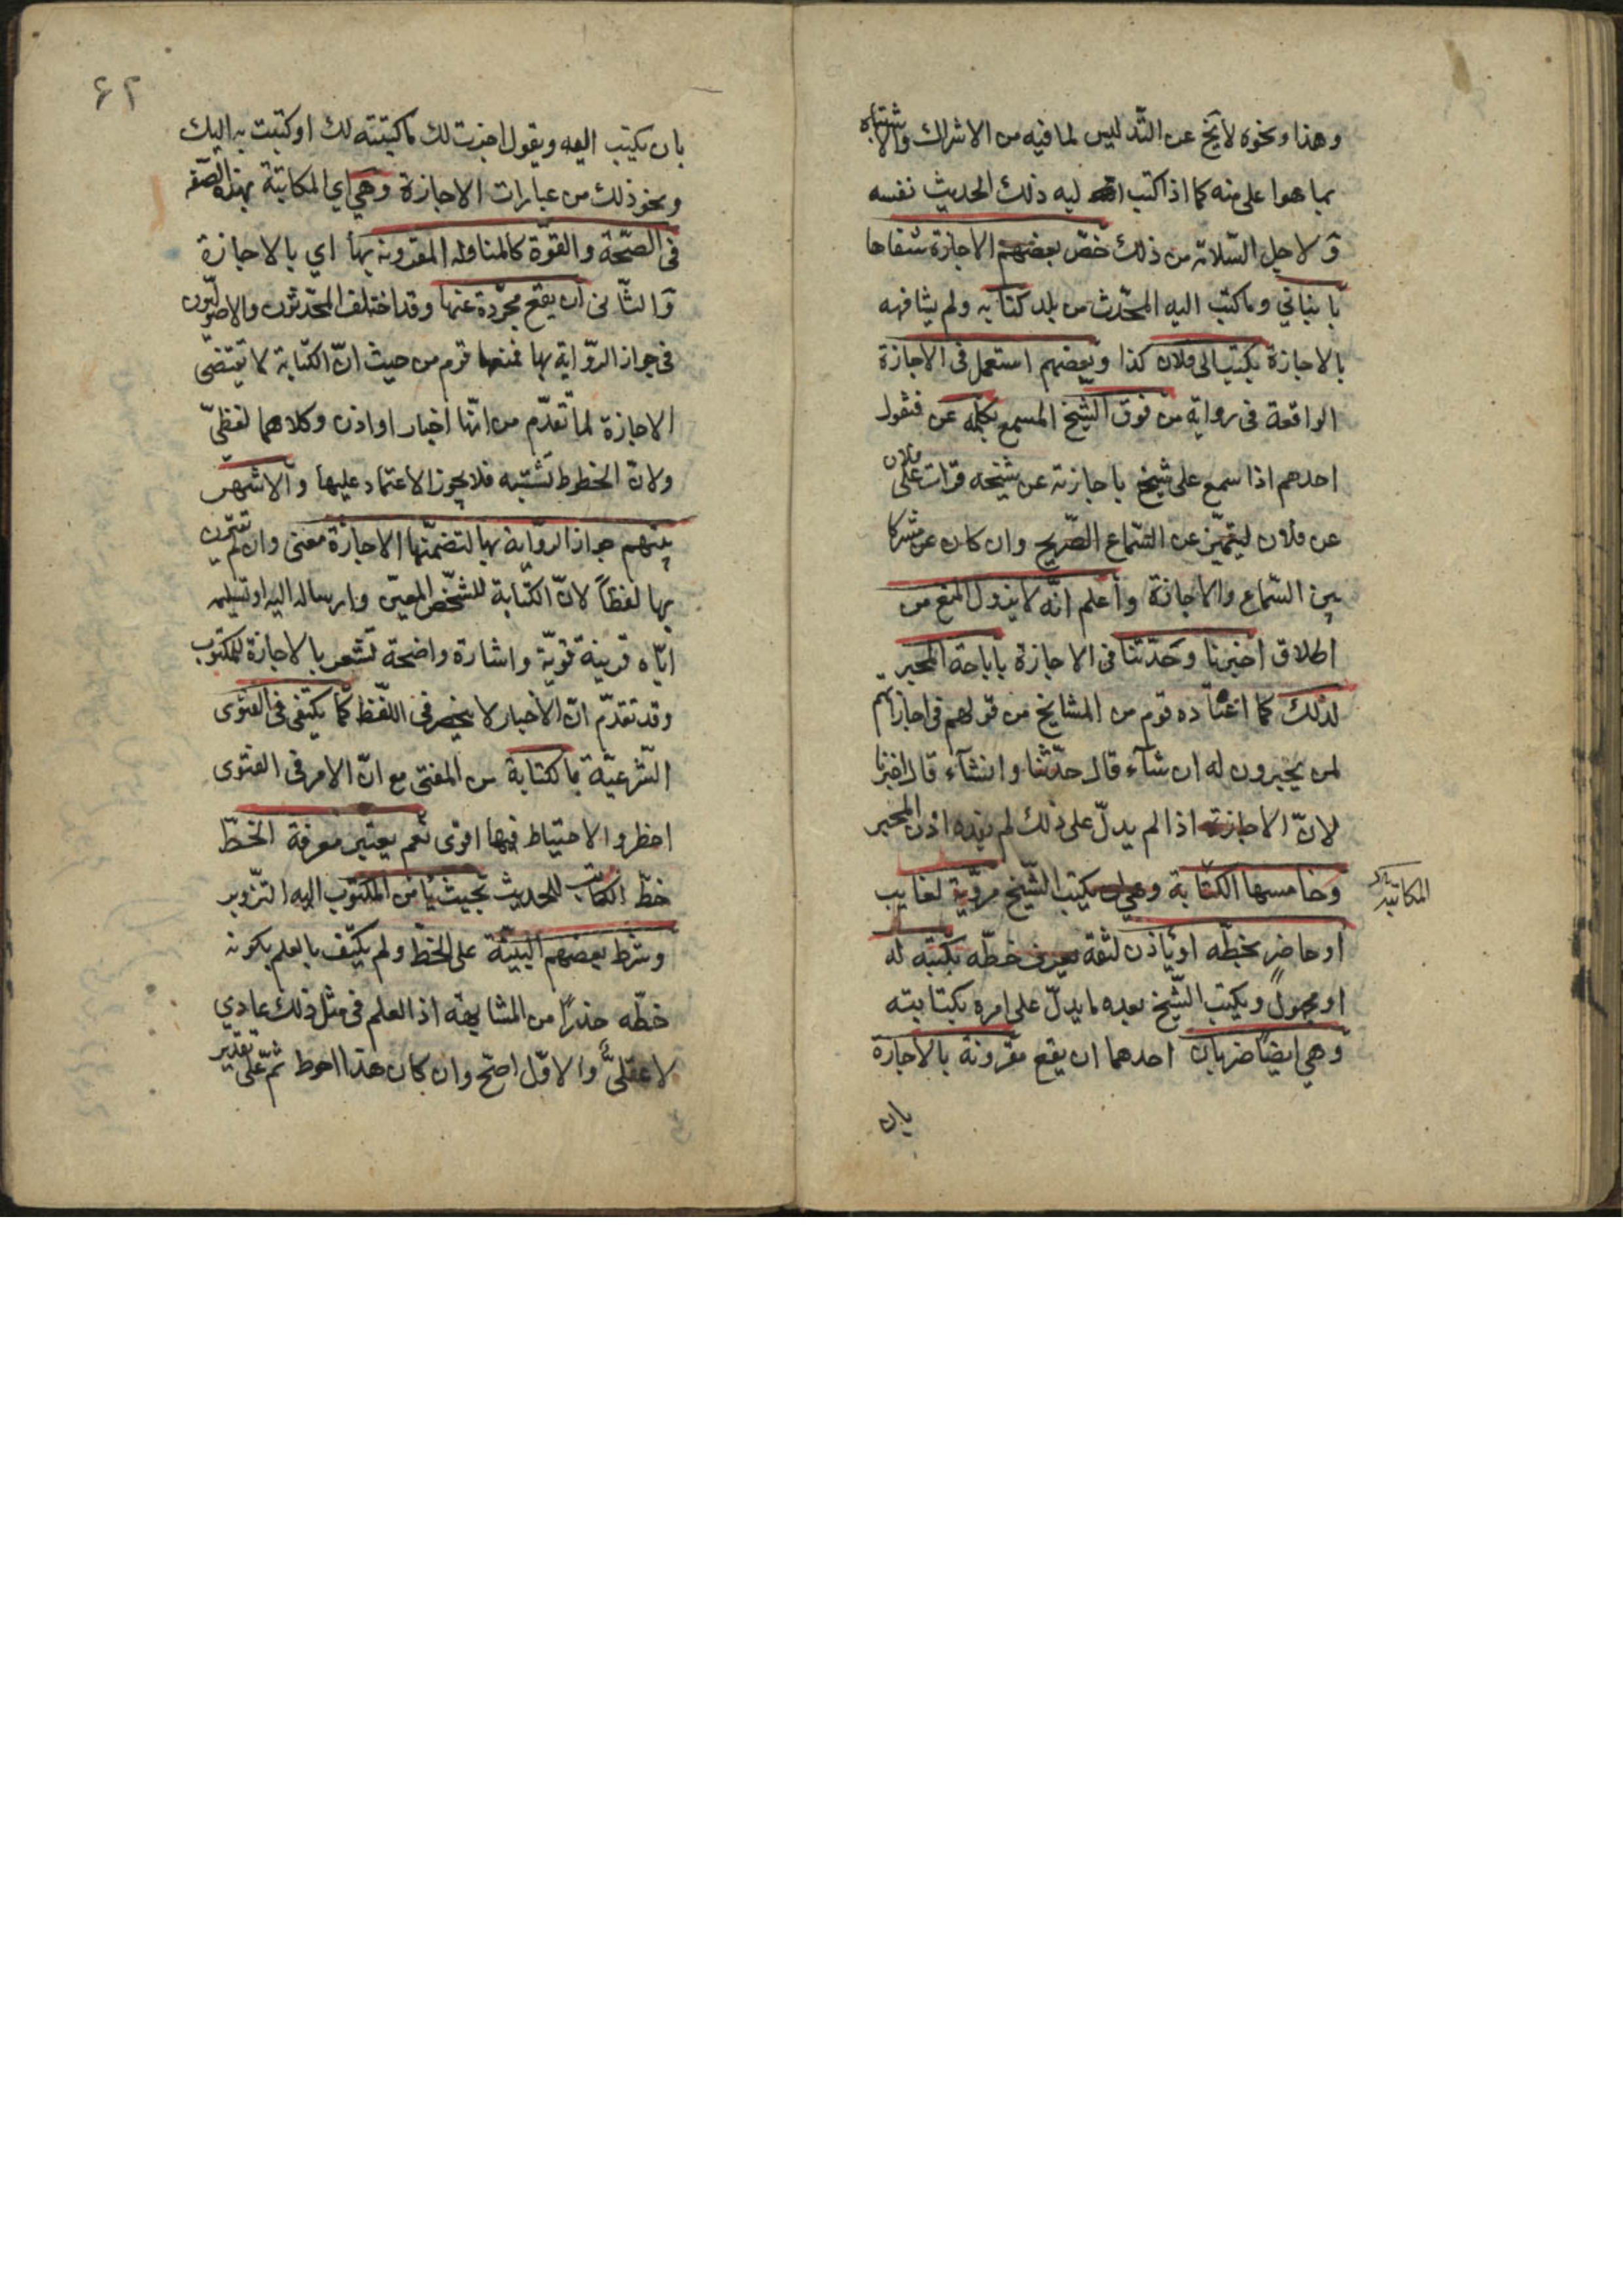 وهذا ونحوه لا يخ عن التّدليس لما فيه من الاشراك والاشتباه
بما هوا على منه كما اذا كتب اليه ذلك الحديث نفسه
وَلاجل السّلامة من ذلك خصّ بعضهم الاجازة شفاها
بانباني وما كتب اليه المحدّث من بلد كتابه ولم يشافهه
بالاجازة بكتب الى فلان كذا وبعضهم استعمل في الاجازة
الواقعة في رواية من فوق الشّيخ المسمع بكلمة عن فيقول
احدهم اذا سمع على شيخ باجازته عن شيخه قرات على فلان
عن فلان ليتميّز عن السّماع الصّريح وان كان عن مشتركا
بين السّماع والاجازة وأعلم انّه لا يزول المنع من
اطلاق اخبرنا وحدّثنا في الاجازة باباحة المجيز
لذلك كما اعتاده قوم من المشايخ من قولهم في اجازاتهم
لمن يجيزون له ان شآء قال حدّثنا وان شآء قال اخبرنا
لانّ الاجازة اذا لم يدلّ على ذلك لم يفده اذن المجيز
وخامسها الكتابة وهي ان يكتب الشّيخ مرويّه لغايب
المكاتبة
او حاضر بخطّه او ياذن لثقة يعرف خطّه بكتبه له
او مجهول ويكتب الشّيخ بعده ما يدلّ على امره بكتابته
وهي ايضاً ضربان احدهما ان يقع مقرونة بالاجازة
بان
٦٢
بان يكتب اليه ويقول اجزت لك ما كتبته لك او كتبت به اليك
ونحو ذلك من عبارات الاجازة وهي اي المكاتبة بهذه الصّفة
في الصّحّة والقوّة كالمناولة المقرونة بها اي بالاجازة
وَالثّاني ان يقع مجرّدة عنها وقد اختلف المحدّثون والاصوليّون
في جواز الرّواية بها فمنعها قوم من حيث انّ الكتابة لا تقتضى
الاجازة لما تقدّم من انّها اخبار او اذن وكلاهما لفظيّ
ولانّ الخطوط تشتبه فلا يجوز الاعتماد عليها والاشهر
بينهم جواز الرّواية بها لتضمّنها الاجازة معنى وان لم تقترن
بها لفظاً لانّ الكتابة للشّخص المعيّن وارساله اليه او تسليمه
ايّاه قرينة قويّة واشارة واضحة تشعر بالاجازة للمكتوب
وقد تقدّم انّ الاخبار لا ينحصر في اللّفظ كما يكتفى في الفتوى
الشّرعيّة بالكتابة من المفتى مع انّ الامر في الفتوى
اخطر والاحتياط فيها اقوى نعم يعتبر معرفة الخطّ
خطّ الكاتب للحديث بحيث يأمن المكتوب اليه التّزوير
وشرط بعضهم البيّنة على الخطّ ولم يكتف بالعلم بكونه
خطّه حذراً من المشابهة اذ العلم في مثل ذلك عادي
لا عقليّ والاوّل اصحّ وان كان هذا احوط ثمّ على تقدير